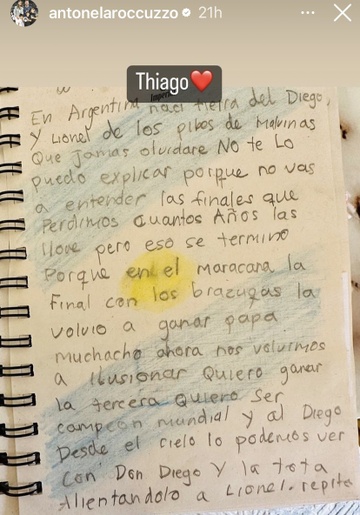 antonelaroccuzzo 21h
Thiago❤️
En Argentina naci tierra del Diego,
Y Lionel de los pibes de Malvinas
Que jamas olvidare NO te Lo
puedo explicar porque no vas
a entender las finales que
Perdimos Cuantos Años las
llore pero eso se termino
Porque en el maracara la
Final con los brazugas la
volvio a ganar papa
muchacho ahora nos volvimos
a ilusionar Quiero ganar
la tercera Quiero Ser
campeon mundial y al Diego
Desde el cielo lo podemos ver
con Don Diego y la tota
Alientandolo a Lionel. repite